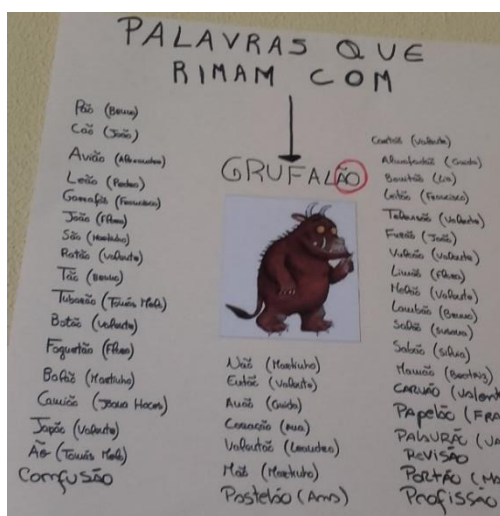 PALAVRAS QUE
RIMAM COM
GRUFALÃO
Pão (Bruno)
Cão (João)
Avião (Alexandre)
Leão (Pedro)
Garrafão (Francisco)
João (Flora)
São (Martinho)
Ratão (Valente)
Tão (Bruno)
Tubarão (Tomás Melo)
Botão (Valente)
Foguetão (Flora)
Balão (Martinho)
Camião (Joana)
Japão (Valente)
Ão (Tomás Melo)
Confusão
Não (Martinho)
Então (Valente)
Avião (Guida)
Coração (Ana)
Valentão (Leandro)
Mão (Martinho)
Pastelão (Ams)
(Valente)
Almofadão (Guida)
Bonitão (Lia)
Leitão (Francisco)
Televisão (Valente)
Furão (João)
Vulcão (Valente)
Limão (Flora)
Melão (Valente)
(Bruno)
Salão (Susana)
Sabão (Silvia)
Mamão (Beatriz)
CARVÃO (Valent
PAPELÃO (FRA
(VA
REVISÃO
PORTÃO (MA
Profissão